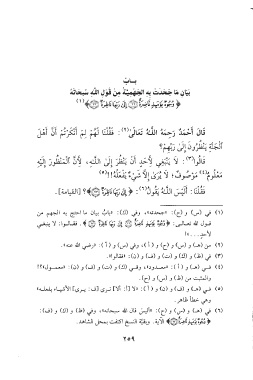 بــاب
بَيَانِ مَا جَحَدَتْ بِهِ الجَهْمِيَّةُ مِنْ قَوْلِ اللَّهِ سُبْحَانَهُ
﴿ وُجُوهٌ يَوْمَئِذٍ نَّاضِرَةٌ ۝ إِلَىٰ رَبِّهَا نَاظِرَةٌ ۝ ﴾(١)
قَالَ أَحْمَدُ رَحِمَهُ اللَّهُ تَعَالَى(٢): فَقُلْنَا لَهُمْ لِمَ أَنْكَرْتُمْ أَنَّ أَهْلَ
الْجَنَّةِ يَنْظُرُونَ إِلَى رَبِّهِمْ؟
قَالُوا(٣): لَا يَنْبَغِي لِأَحَدٍ أَنْ يَنْظُرَ إِلَى اللَّهِ، لِأَنَّ الْمَنْظُورَ إِلَيْهِ
مَعْلُومٌ(٤) مَوْصُوفٌ، لَا يُرَى إِلَّا شَيْءٌ يَفْعَلُهُ!!(٥)
فَقُلْنَا: أَلَيْسَ اللَّهُ يَقُولُ(٦): ﴿ إِلَىٰ رَبِّهَا نَاظِرَةٌ ۝ ﴾؟ [القيامة].
(١) في (س) و (ج): «جحدته»، وفي (ك): «باب بيان ما احتج به الجهم من
قول الله تعالى: ﴿ وُجُوهٌ يَوْمَئِذٍ نَّاضِرَةٌ ۝ إِلَىٰ رَبِّهَا نَاظِرَةٌ ۝ ﴾. فقالوا: لا ينبغي
لأحد...»
(٢) من (هـ) و (س) و (ج) و (أ)، وفي (س) و (أ): «رضي الله عنه».
(٣) في (ظ) و (ك) و (ت) و (ف) و (ن): «فقالوا».
(٤) فـي (هـ) و (أ): «معدود»، وفـي (ك) و (ت) و (ف) و (ن): «معمول»؟!
والمثبت من (ظ) و (س) و (ج).
(٥) فـي (هـ) و (س) و (أ) و (ن):
وهي خطأ ظاهر.
(٦) في (س) و (ج): «أليس قال الله سبحانه»، وفي (ظ) و (ك) و (ف):
﴿ وُجُوهٌ يَوْمَئِذٍ نَّاضِرَةٌ ۝ ﴾ الآية. وبقيّة النسخ اكتفت بمحل الشاهد.
٢٥٩